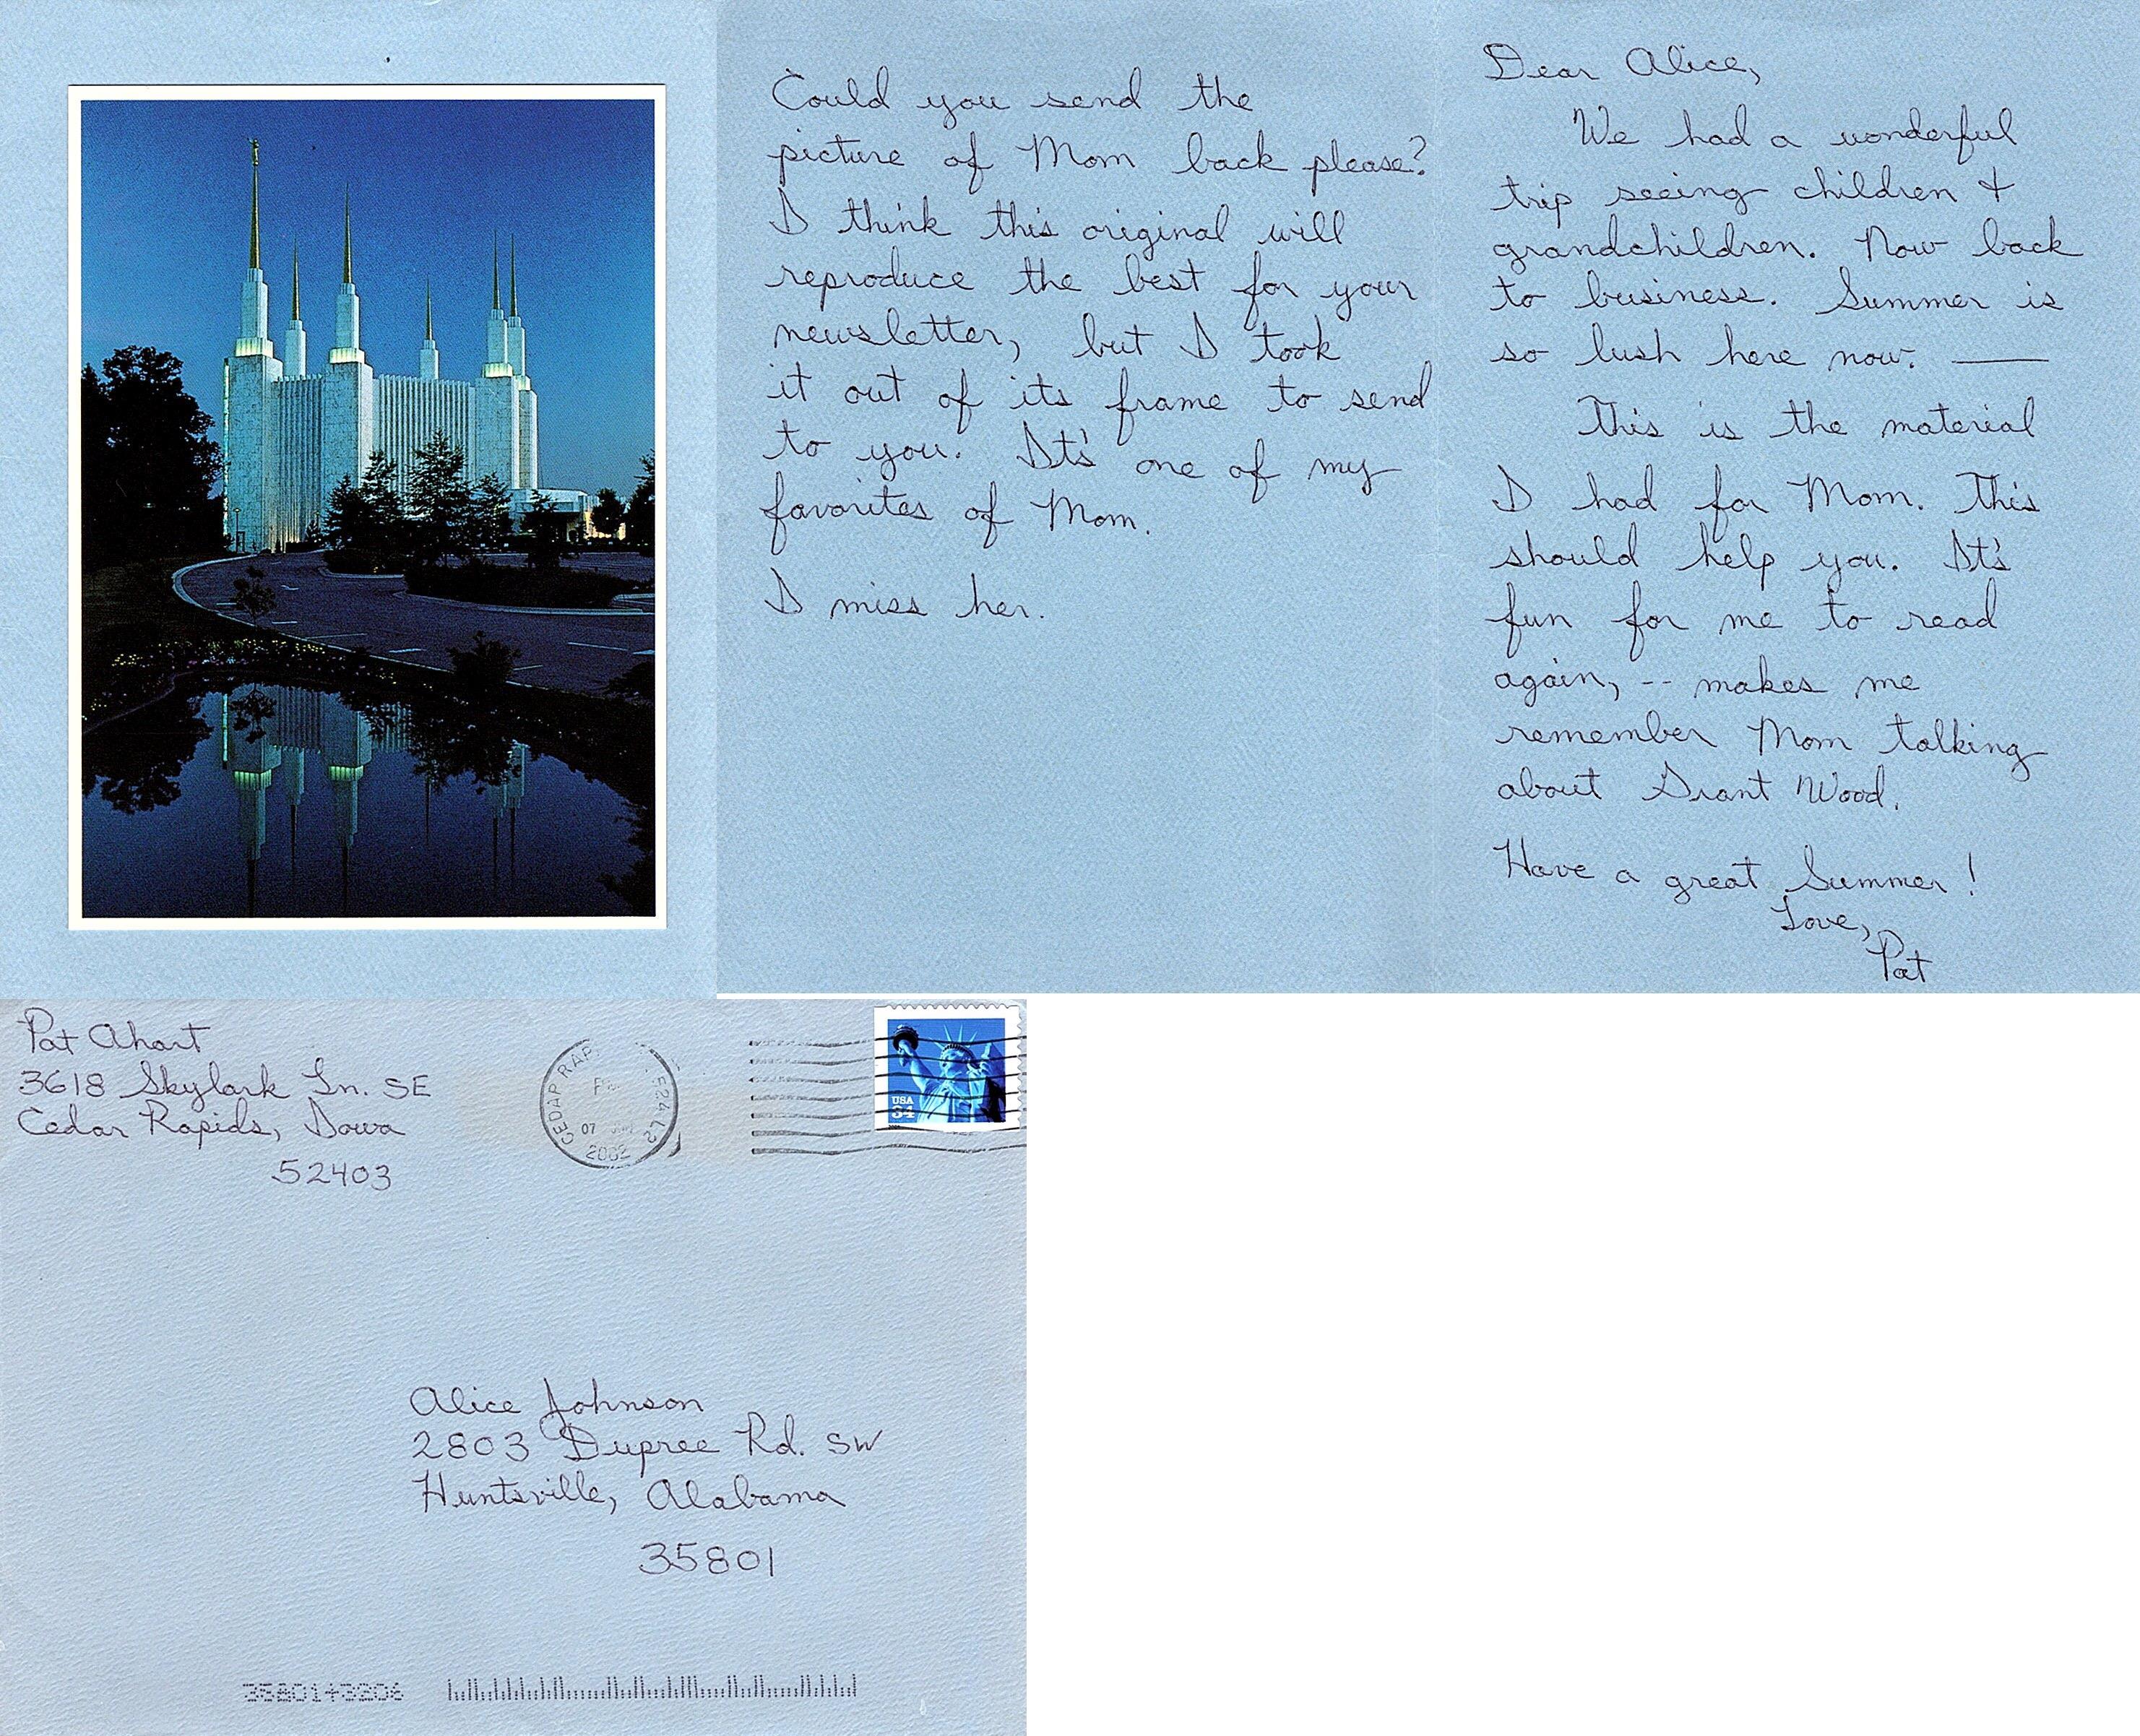 Dear Alice,
We had a wonderful
trip seeing children +
grandchildren. Now back
to business. Summer is
so lush here now. ——
This is the material
I had for Mom. This
should help you. It's
fun for me to read
again, -- makes me
remember Mom talking
about Grant Wood.
Have a great Summer!
Love,
Pat
Could you send the
picture of Mom back please?
I think this original will
reproduce the best for your
newsletter, but I took
it out of its frame to send
to you. It's one of my
favorites of Mom.
I miss her.
Pat Ahart
3618 Skylark Ln. SE
Cedar Rapids, Iowa
52403
CEDAR RAP 524 L2
07
2002
USA
34
Alice Johnson
2803 Dupree Rd. SW
Huntsville, Alabama
35801
35801+3206